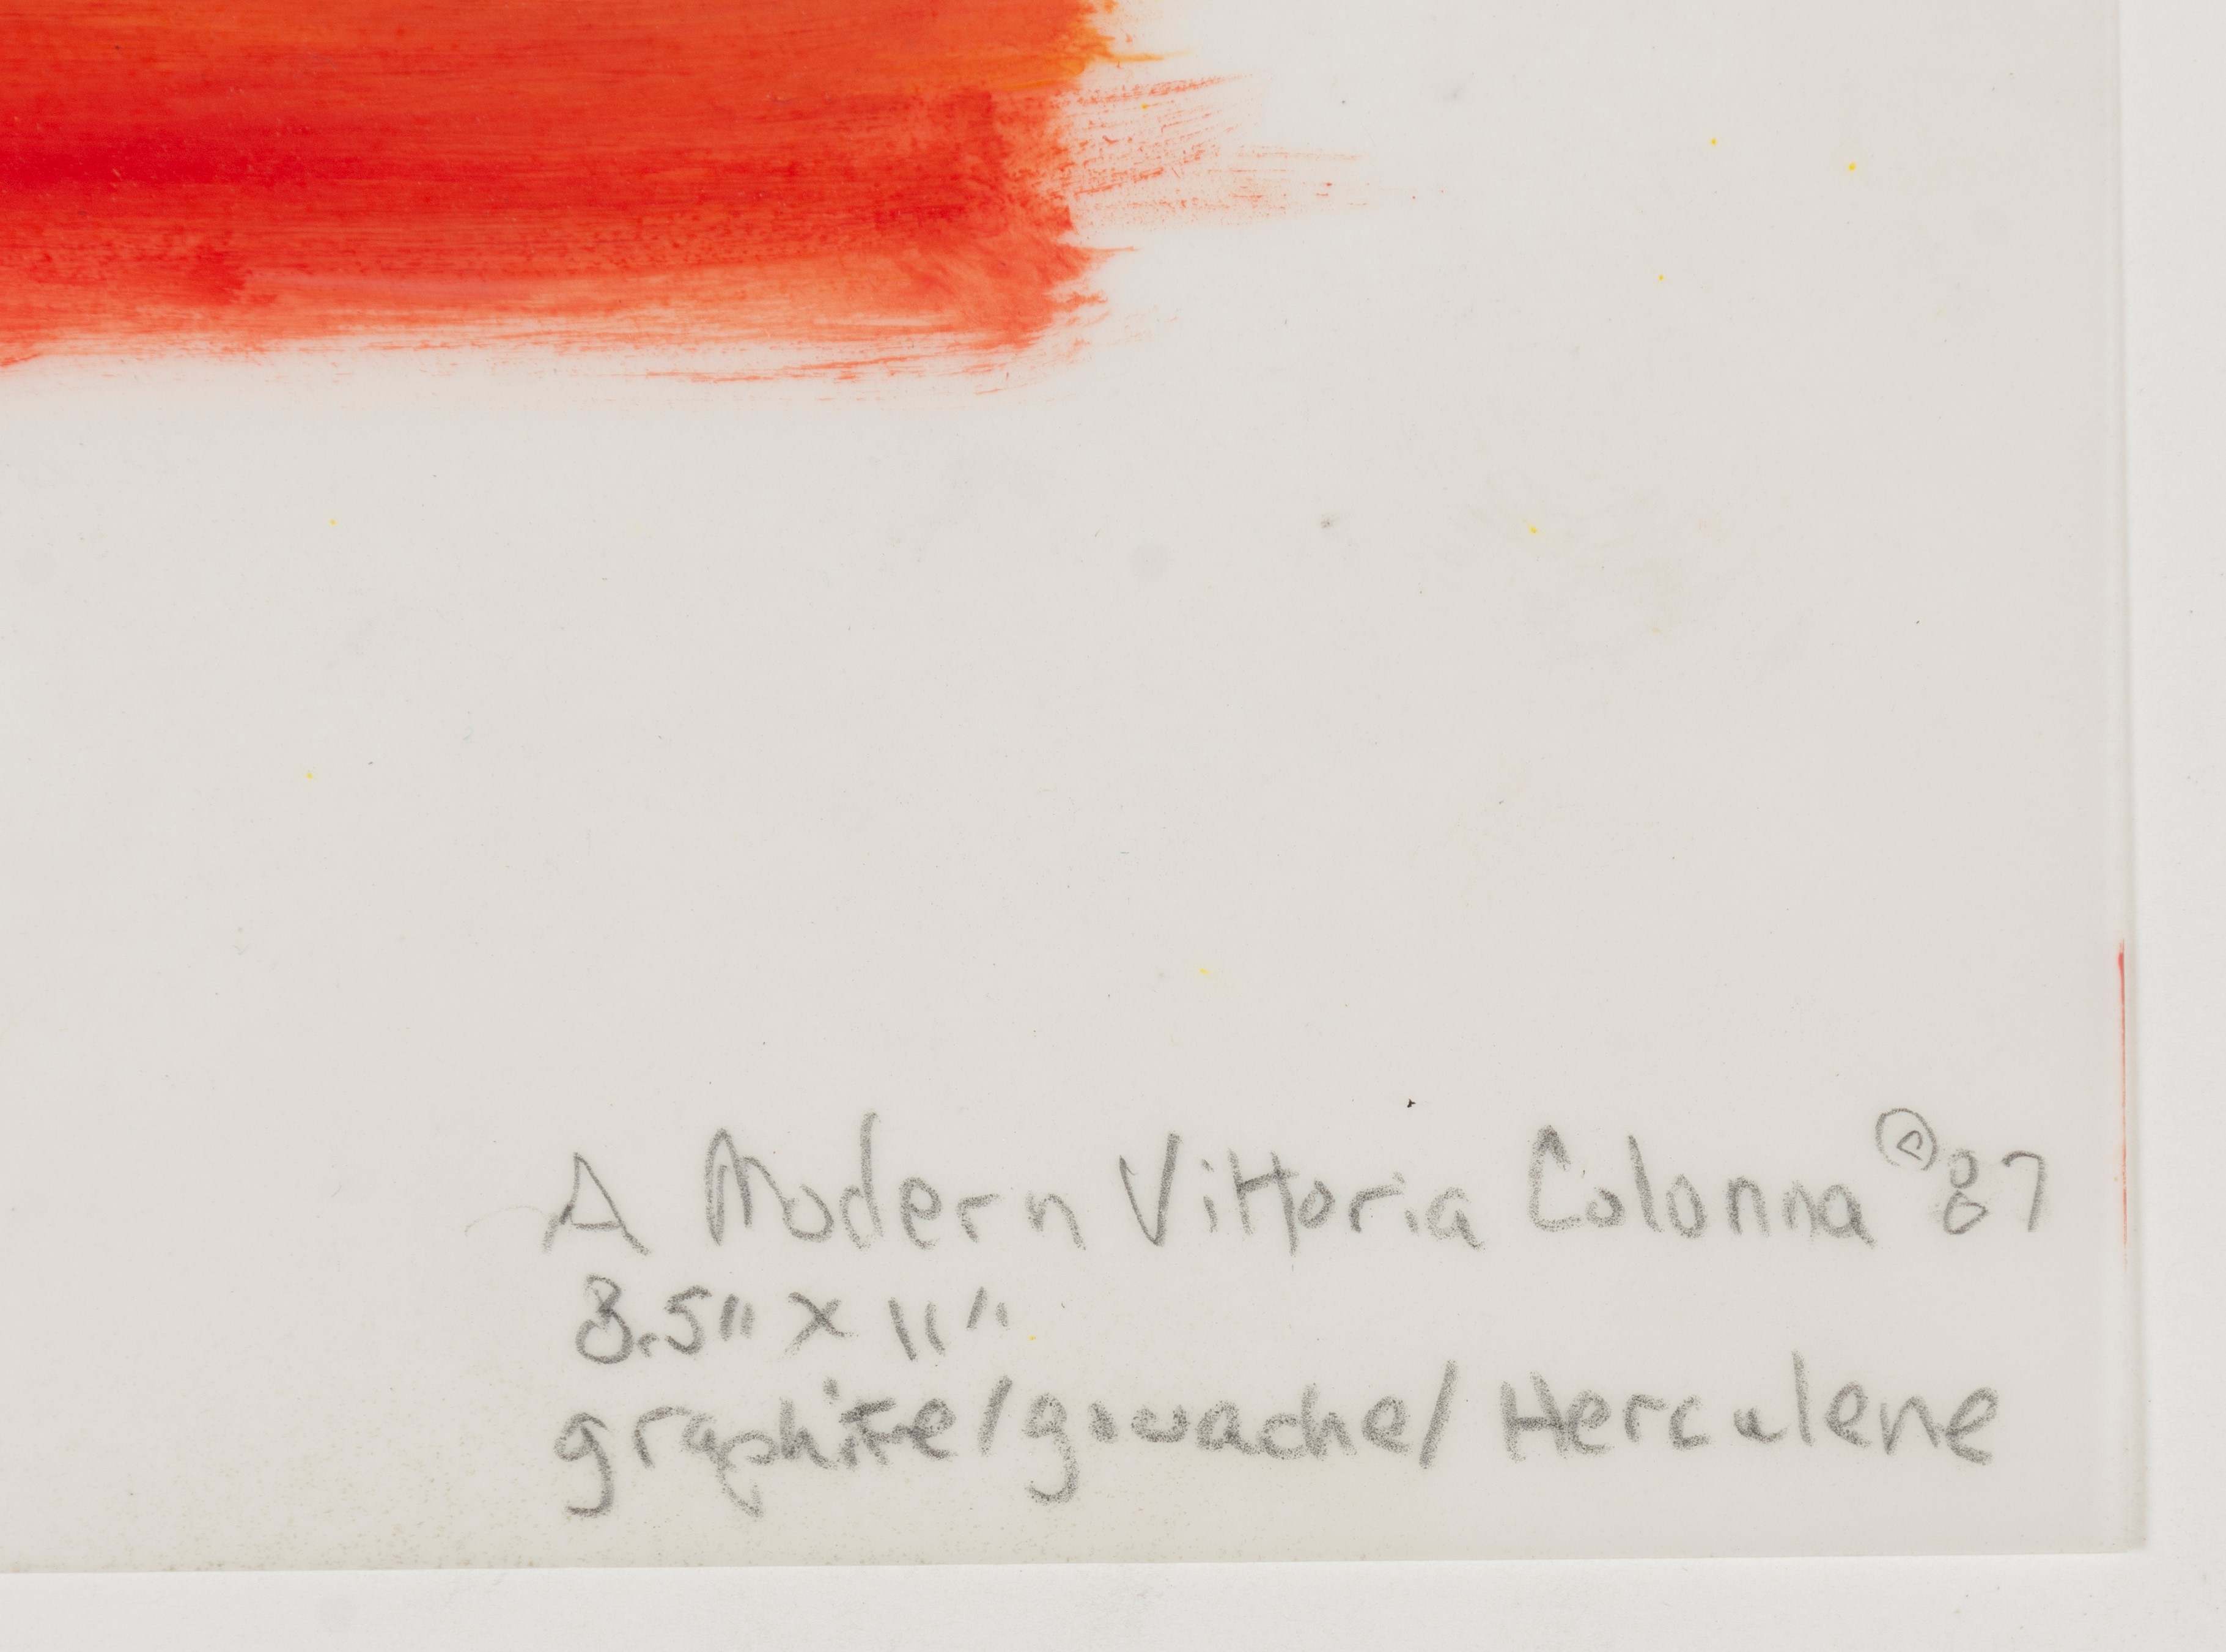 A Modern Vittoria Colonna © 87
8.5" x 11"
graphite/gouache/Herculene